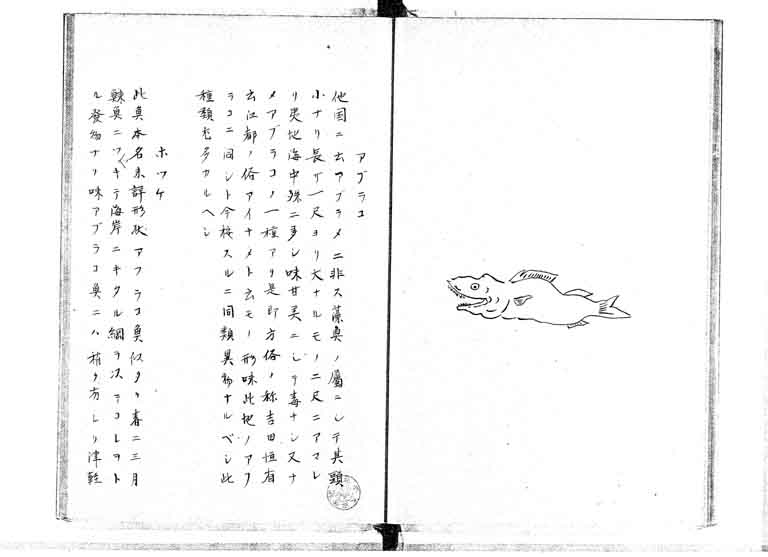 アブラコ
他国ニ云アブラメニ非ス藻魚ノ属ニシテ其頭
小ナリ長サ一尺ヨリ大ナルモノ二尺ニアマレ
リ夷地海中殊ニ多シ味甘美ニシテ毒ナシ又ナ
メアブラコノ一種アリ是即方俗ノ称吉田恒有
云江都ノ俗アイナメト云モノ形味此地ノアフ
ラコニ同シト今按スルニ同類異物ナルベシ此
種類尤多カルヘシ
ホッケ
此魚本名未詳形状アフラコ魚似タリ春二三月
鰊魚ニツキテ海岸ニキタル網ヲ以テコレヲト
ル発物ナリ味アブラコ魚ニハ稍々劣レリ津軽